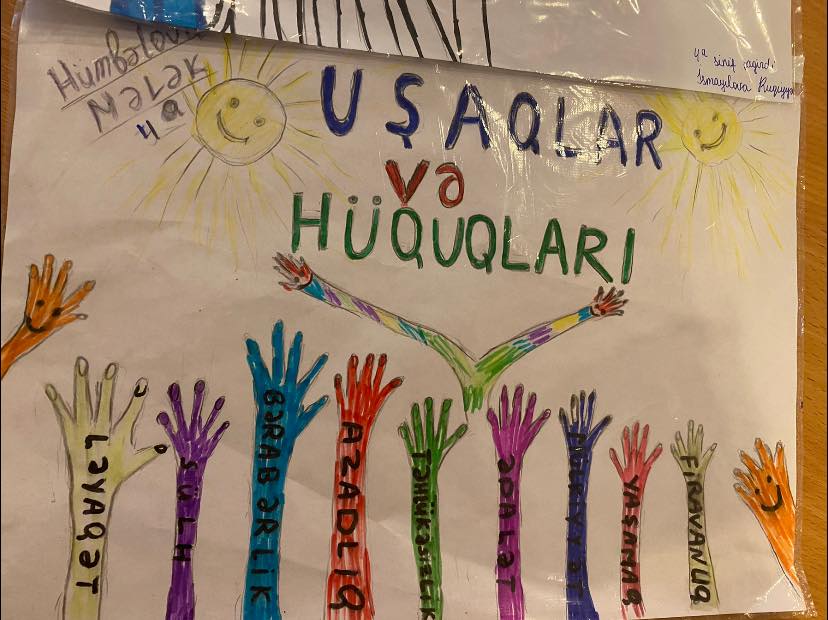 Hümbəlov
Mələk
4a
4a sinif şagirdi
İsmayılova Ruqiyyə
UŞAQLAR
və
HÜQUQLARI
LəYAQəT
SÜLH
BəRABəRLİK
AZADLIQ
TəHLÜKəSİZLİK
əDALəT
YAŞAMAQ
FİRAVANLIQ